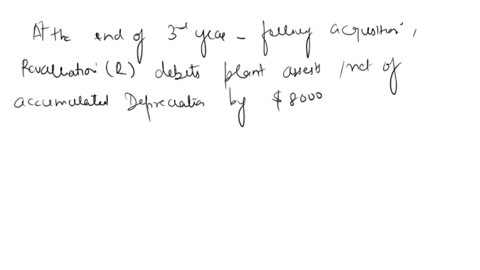 At the end of 3rd year - follwng acquisition,
Revaluation (R) debits plant assets /net of
accumulated Depreciation by $8000